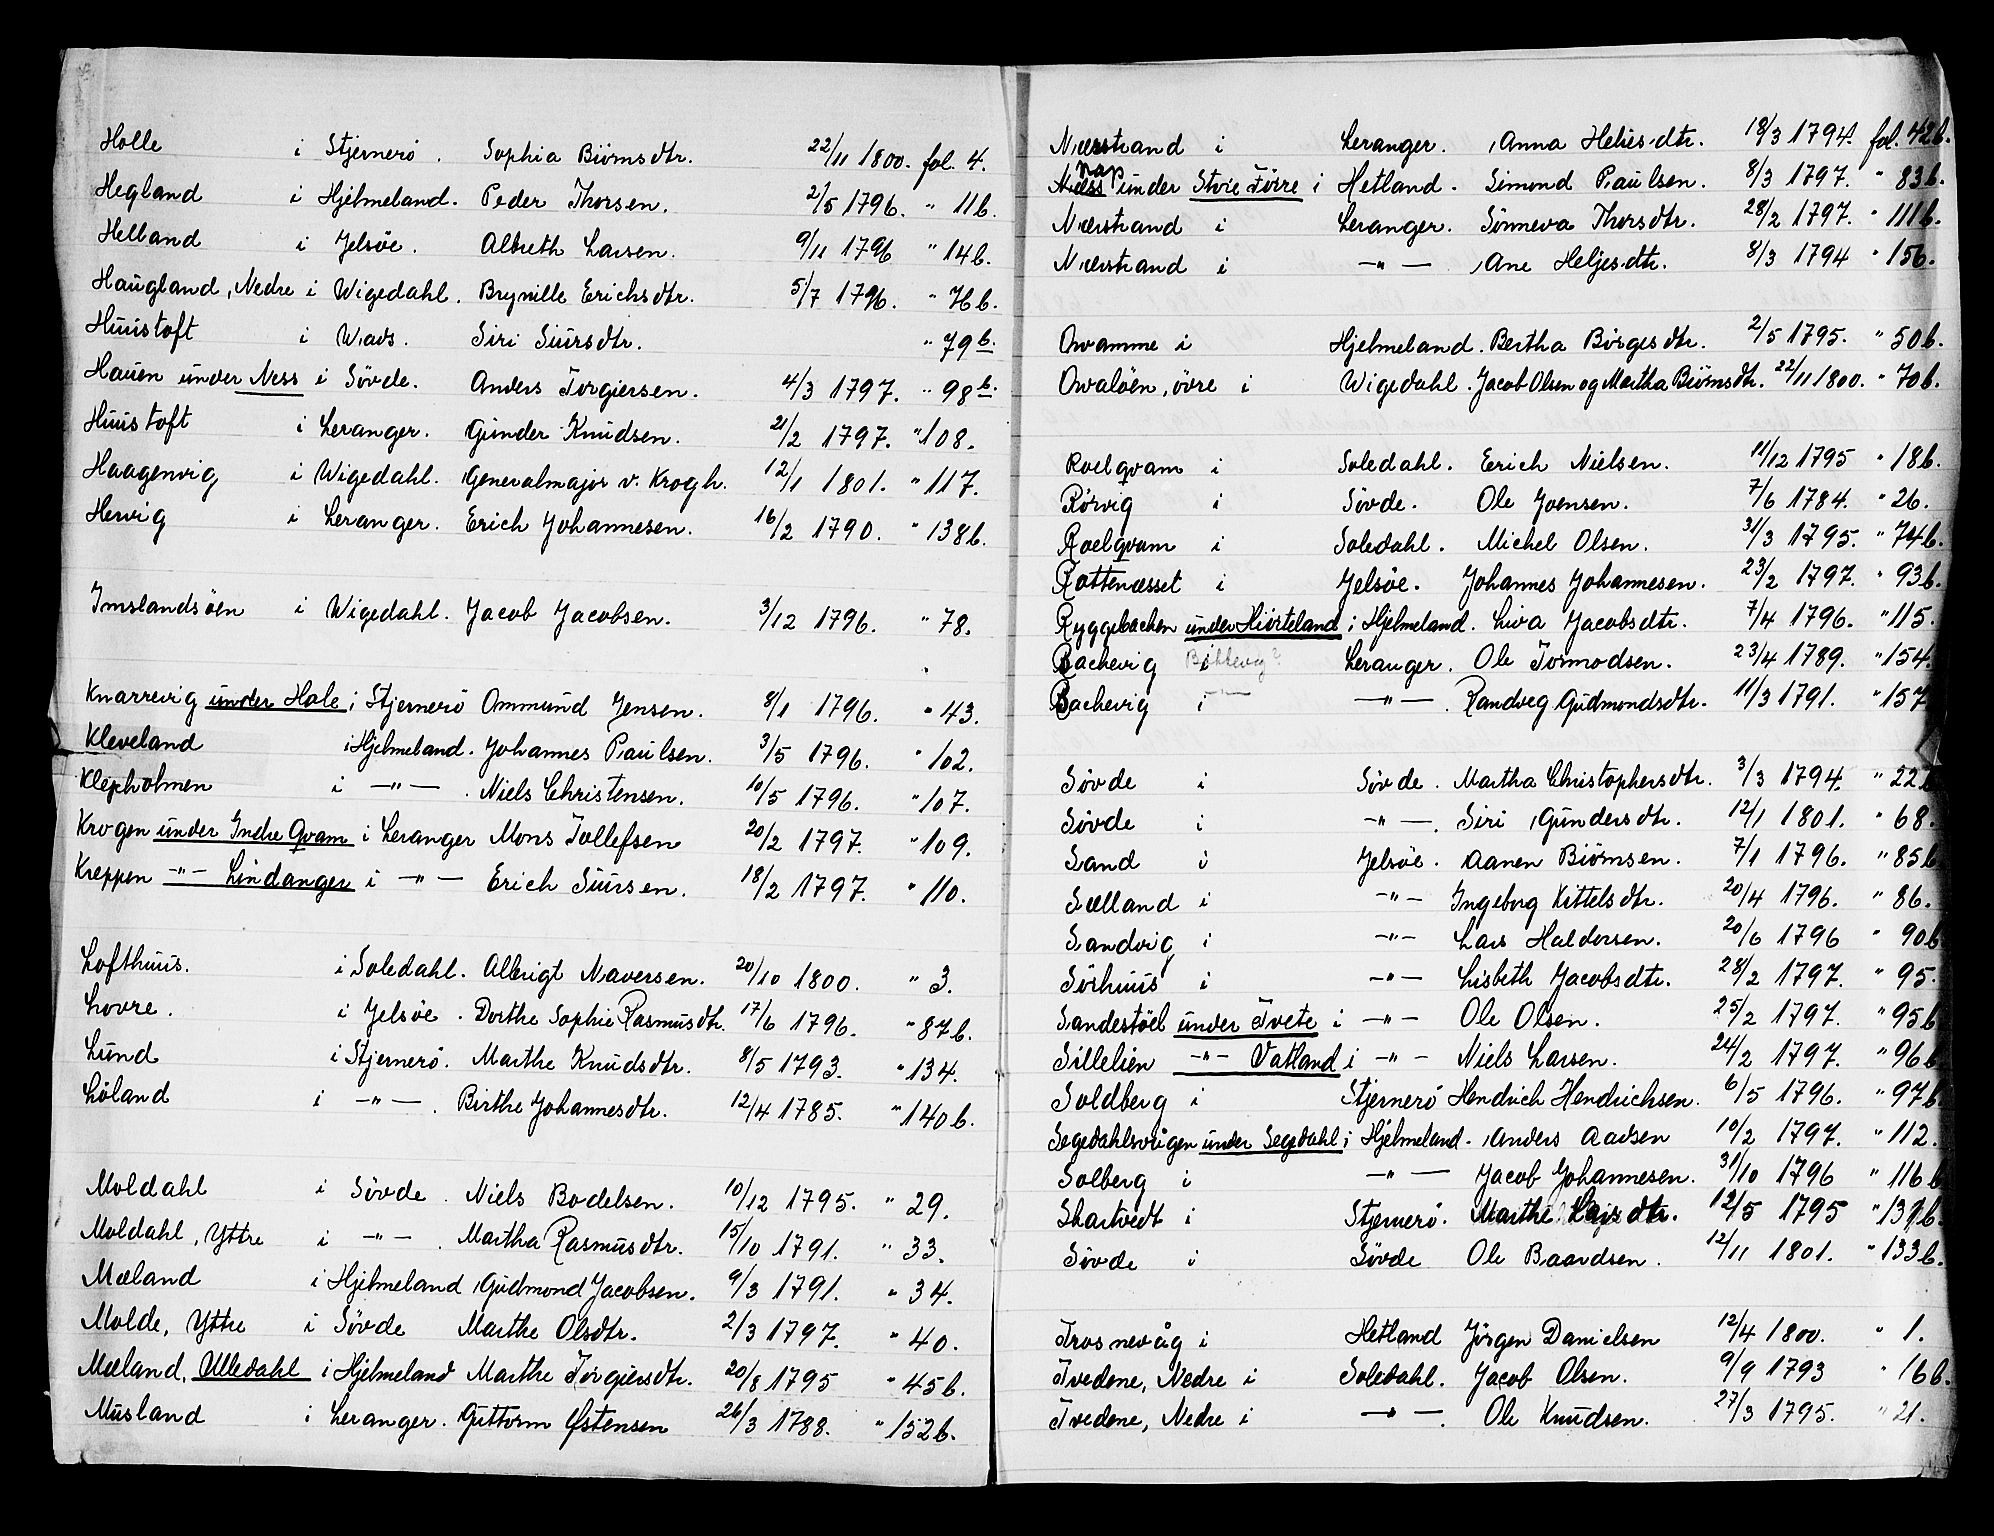 Holle i Stjernerö. Sophia Biörnsdtr. 22/11 1800. fol. 4.
Hegland i Hjelmeland. Peder Thorsen. 2/5 1796. " 11b.
Helland i Jelsöe. Albreth Larsen. 9/11 1796 " 14b.
Haugland, Nedre i Wigedahl. Brynille Erichsdtr. 5/7 1796. " 76b.
Huustoft i Wads. Siri Siursdtr. " 79b.
Hauen under Ness i Sövde. Anders Torgiersen. 4/3 1797. " 98b.
Huustoft i Leranger. Gunder Knudsen. 21/2 1797. " 108.
Haagenvig i Wigedahl. Generalmajor v. Krogh. 12/1 1801. " 117.
Hervig i Leranger. Erich Johannesen. 16/2 1790. " 138b.
Imslandsöen i Wigedahl. Jacob Jacobsen. 3/12 1796. " 78.
Knarrevig under Hole i Stjernerö Ommund Jensen. 8/1 1796. " 43.
Kleveland i Hjelmeland. Johannes Paulsen. 3/5 1796. " 102.
Klepholmen i -"-. Niels Christensen. 10/5 1796. " 107.
Krogen under Indre Qvam i Leranger Mons Tollefsen 20/2 1797. " 109.
Kreppen -"- Lindanger i -"- Erich Siursen. 18/2 1797. " 110.
Lofthuus. i Soledahl. Albrigt Naversen. 20/10 1800. " 3.
Lovre. i Jelsöe. Dorthe Sophie Rasmusdtr. 17/6 1796. " 87b.
Lund i Stjernerö. Marthe Knudsdtr. 8/5 1793. " 134.
Löland i -"-. Birthe Johannesdtr. 12/4 1785. " 140b.
Moldahl i Sövde. Niels Bodelsen. 10/12 1795. " 29.
Moldahl, Yttre i -"-. Martha Rasmusdtr. 15/10 1791. " 33.
Mæland i Hjelmeland Gudmond Jacobsen. 9/3 1791. " 34.
Molde, Yttre i Sövde Marthe Olsdtr. 2/3 1797. " 40.
Mæland, Ulledahl i Hjelmeland Marthe Torgiersdtr. 20/8 1795 " 45b.
Musland i Leranger. Guttorm Østensen 26/3 1788. " 152b.
Nærstrand i Leranger. Anna Helies.dtr. 18/3 1794. fol. 42b.
Nap under Store Förre i Hetland. Simond Paulsen. 8/3 1797. " 83b.
Nærstrand i Leranger. Sönneva Thorsdtr. 28/2 1797. " 111b.
Nærstrand i -"- Ane Heljes.dtr. 8/3 1794 " 156.
Qwamme i Hjelmeland. Bertha Börgesdtr. 2/5 1795. " 50b.
Qwalöen, övre i Wigedahl. Jacob Olsen og Martha Biörnsdtr. 22/11 1800. " 70b.
Roelqvam i Soledahl. Erich Nielsen. 11/12 1795 " 18b.
Rörvig i Sövde. Ole Joensen. 7/6 1784. " 26.
Roelqvam i Soledahl. Michel Olsen. 31/3 1795. " 74b.
Rottenæsset i Jelsöe. Johannes Johannesen. 23/2 1797. " 93b.
Ryggebachen under Hiörteland i Hjelmeland. Liva Jacobsdtr. 7/4 1796. " 115.
Bachevig i Leranger. Ole Tormodsen. 23/4 1789. " 154.
Bachevig i -"-. Randveg Gudmondsdtr. 11/3 1791. " 157
Sövde i Sövde. Martha Christophersdtr. 3/3 1794. " 22b
Sövde i -"-. Siri Gundersdtr. 12/1 1801. " 68.
Sand i Jelsöe. Aanen Biörnsen. 7/1 1796. " 85b
Sælland i -"- Ingeborg Kittelsdtr. 20/4 1796. " 86.
Sandvig i -"- Lars Haldorsen. 20/6 1796 " 90b
Sörhuus i -"- Lisbeth Jacobsdtr. 28/2 1797. " 95.
Sandestöel under Tvete i -"- Ole Olsen. 25/2 1797. " 95b
Sillelien -"- Vatland i -"- Niels Larsen. 24/2 1797. " 96b
Soldberg i Stjernerö Hendrich Hendrichsen. 6/5 1796. " 97b.
Segedahlsvågen under Segedahl i Hjelmeland. Anders Aadsen 10/2 1797. " 112.
Solberg i -"- Jacob Johannesen. 31/10 1796 " 116b
Skartvedt i Stjernerö. Marthe Larsdtr. 12/5 1795 " 131b.
Sövde i Sövde Ole Baardsen. 12/11 1801. " 133b.
Trosnevåg i Hetland Jörgen Danielsen 12/4 1800. " 1.
Tvedene, Nedre i Soledahl. Jacob Olsen. 9/9 1793 " 16b.
Tvedene, Nedre i -"-. Ole Knudsen. 27/3 1795. " 21.